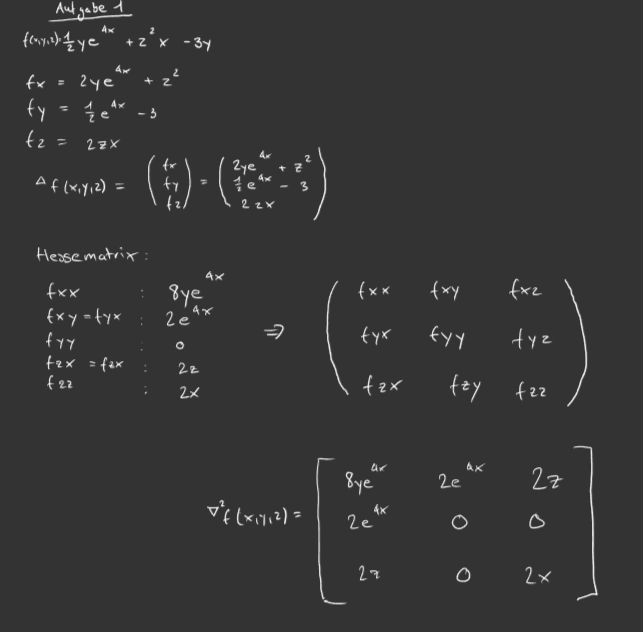 Aufgabe 1
f(x,y,z)=½ye^4x + z²x - 3y
fx = 2ye^4x + z²
fy = ½e^4x - 3
fz = 2zx
Δf(x,y,z) = (fx fy fz) = (2ye^4x + z² ½e^4x - 3 2zx)
Hessematrix:
fxx : 8ye^4x
fxy = fyx : 2e^4x
fyy : 0
fzx = fzx : 2z
fzz : 2x
⇒
fxx fxy fxz
fyx fyy fyz
fzx fzy fzz
∇²f(x,y,z) =
8ye^4x 2e^4x 2z
2e^4x 0 0
2z 0 2x